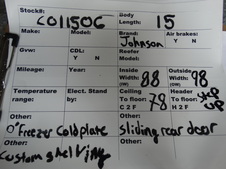 Stock#: CO11506 Body Length 15
Make: Model: Brand: Johnson Air brakes: Y N
Gvw: CDL: Y N
Mileage: Year: Inside Width (IW) 88 Outside Width (OW) 98
Temperature range: Elect. Stand by: Ceiling To floor: C 2 F 78 Header To floor: H 2 F step up
Other: 0° Freezer coldplate sliding rear door
Other: Custom shelving